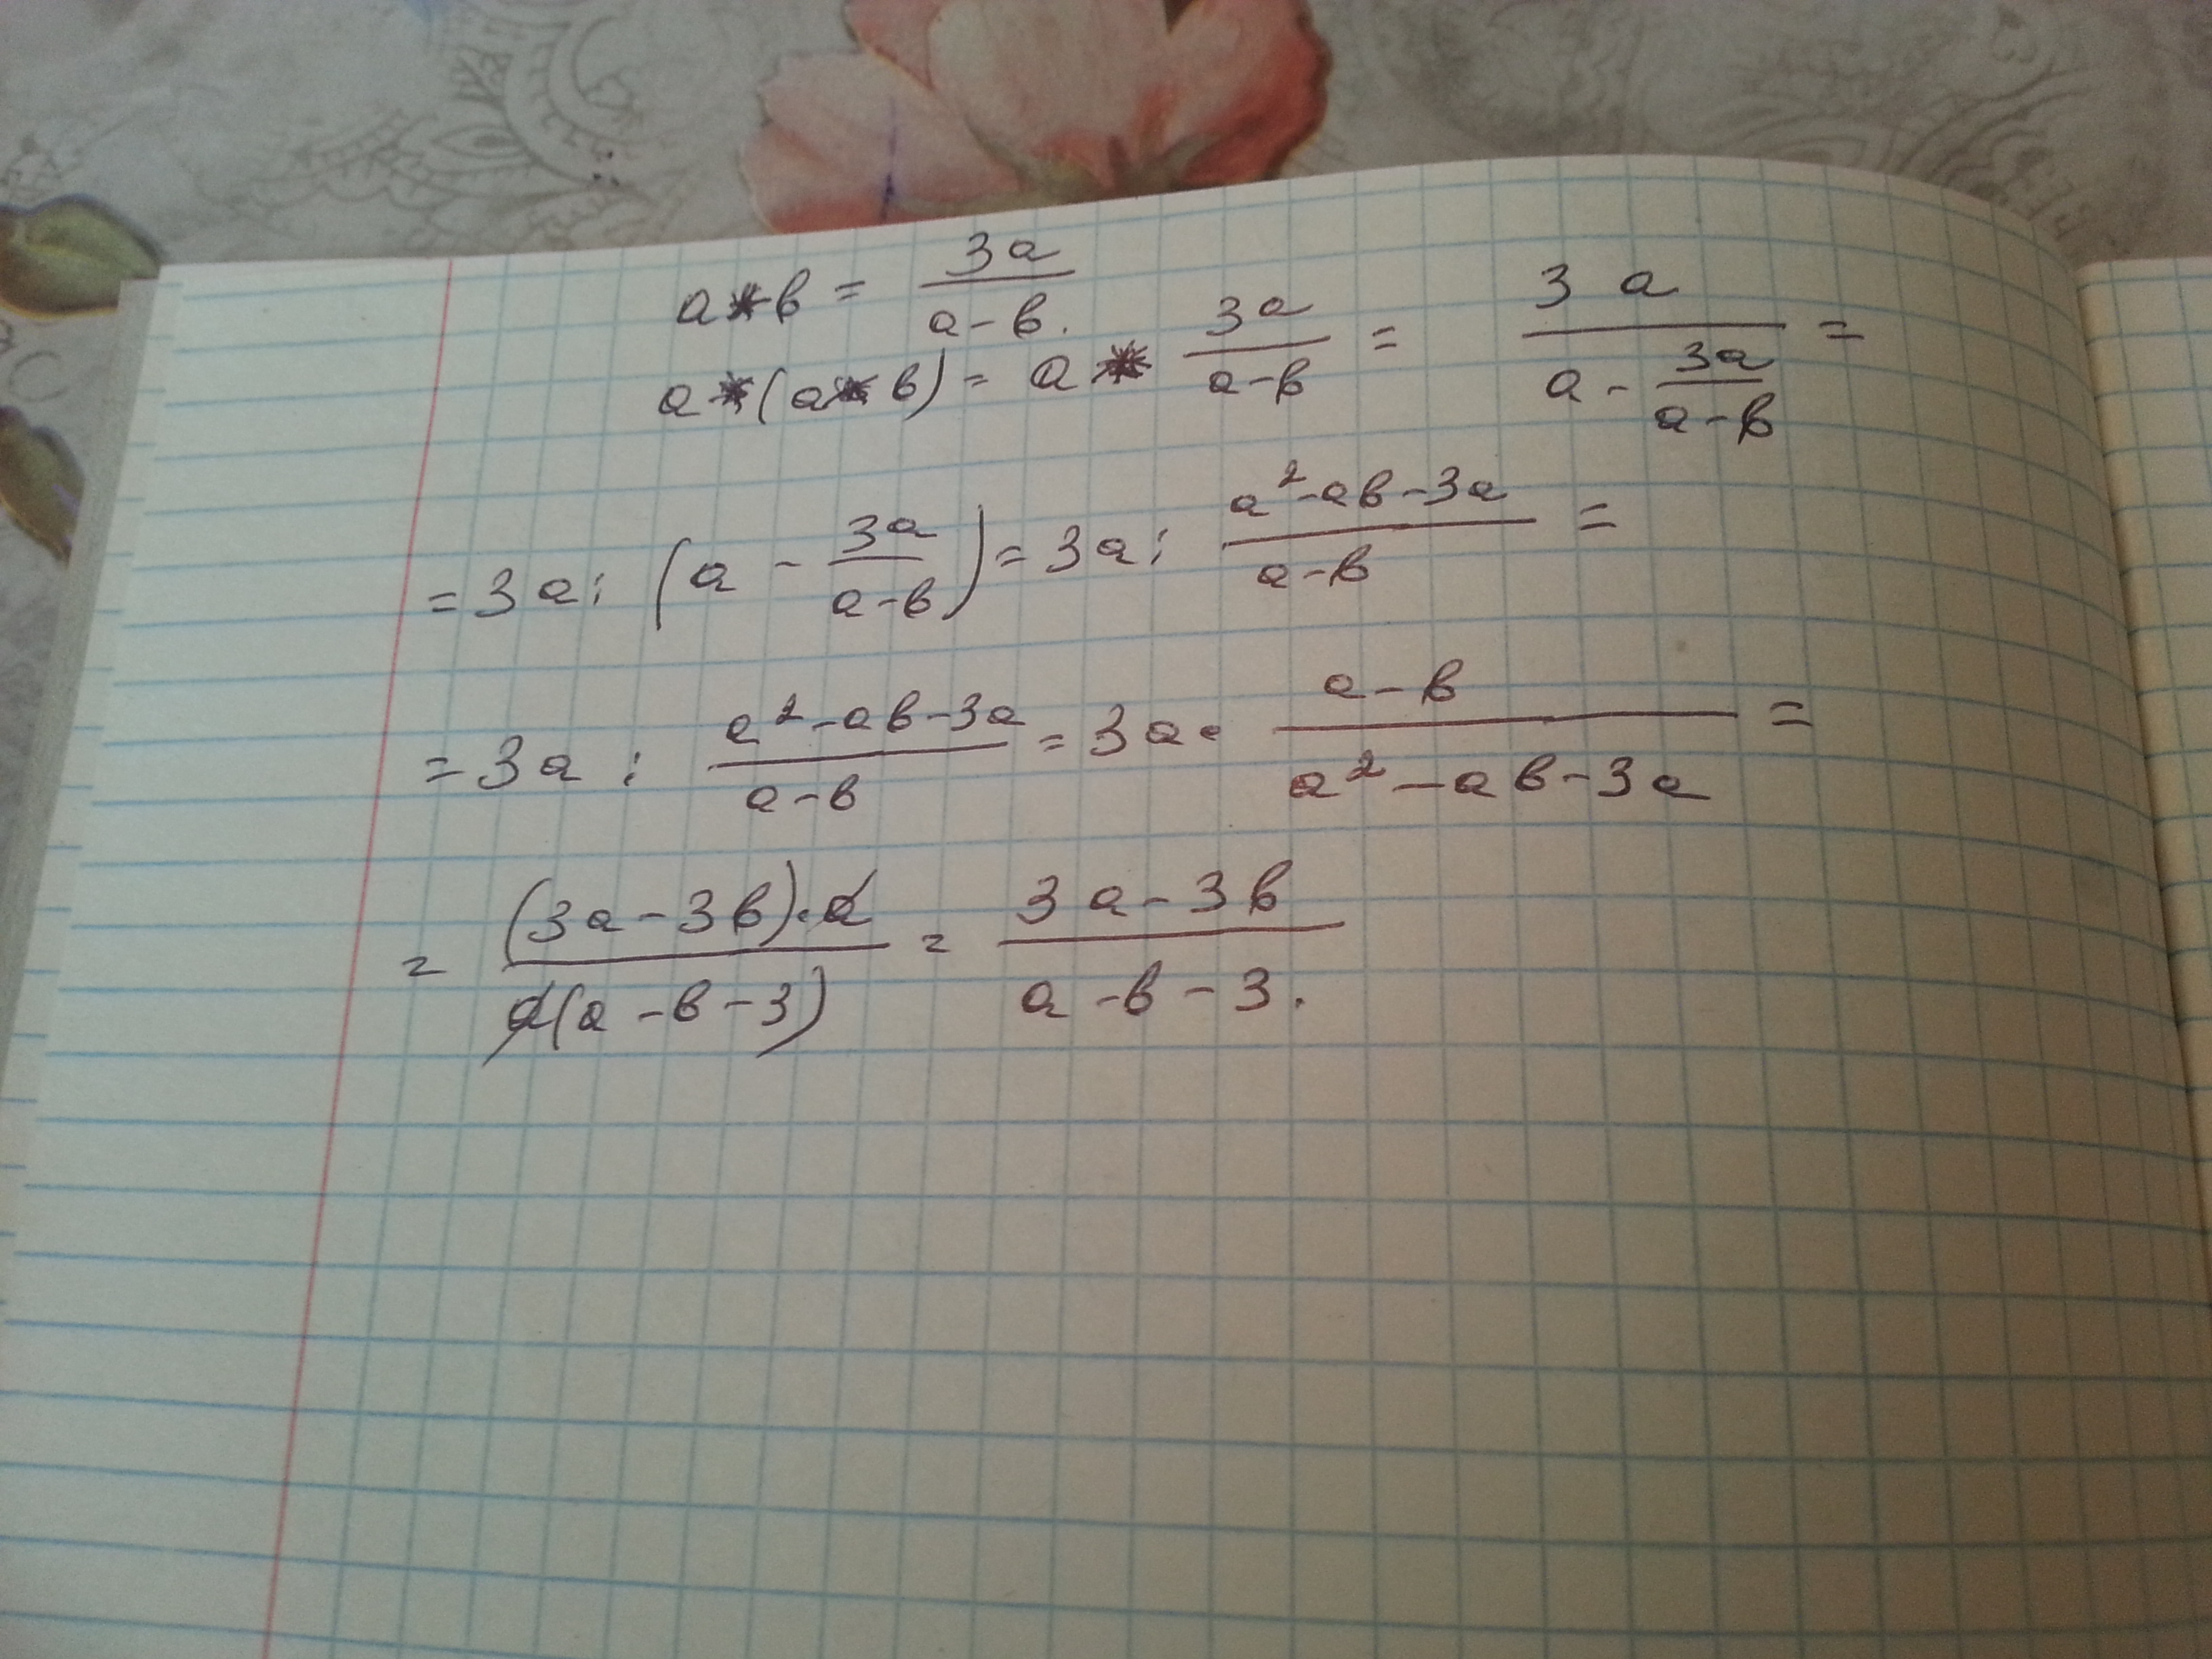 a*b = 3a/(a-b).
a*(a*b) = a * 3a/(a-b) = 3a/(a - 3a/(a-b)) =
= 3a : (a - 3a/(a-b)) = 3a : (a²-ab-3a)/(a-b) =
= 3a : (a²-ab-3a)/(a-b) = 3a · (a-b)/(a²-ab-3a) =
= ((3a-3b)·a)/(a(a-b-3)) = (3a-3b)/(a-b-3).